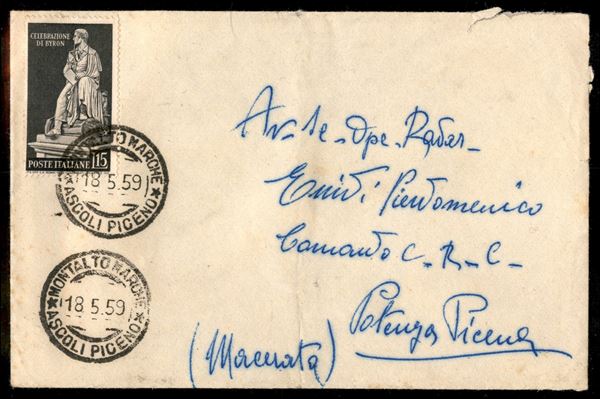 CELEBRAZIONE
DI BYRON
POSTE ITALIANE L15
MONTALTO MARCHE
18.5.59
ASCOLI PICENO
MONTALTO MARCHE
18.5.59
ASCOLI PICENO
Av. te - Ope. Radar -
Enidi Pierdomenico
Comando C. R. C.
Potenza Picena
(Macerata)